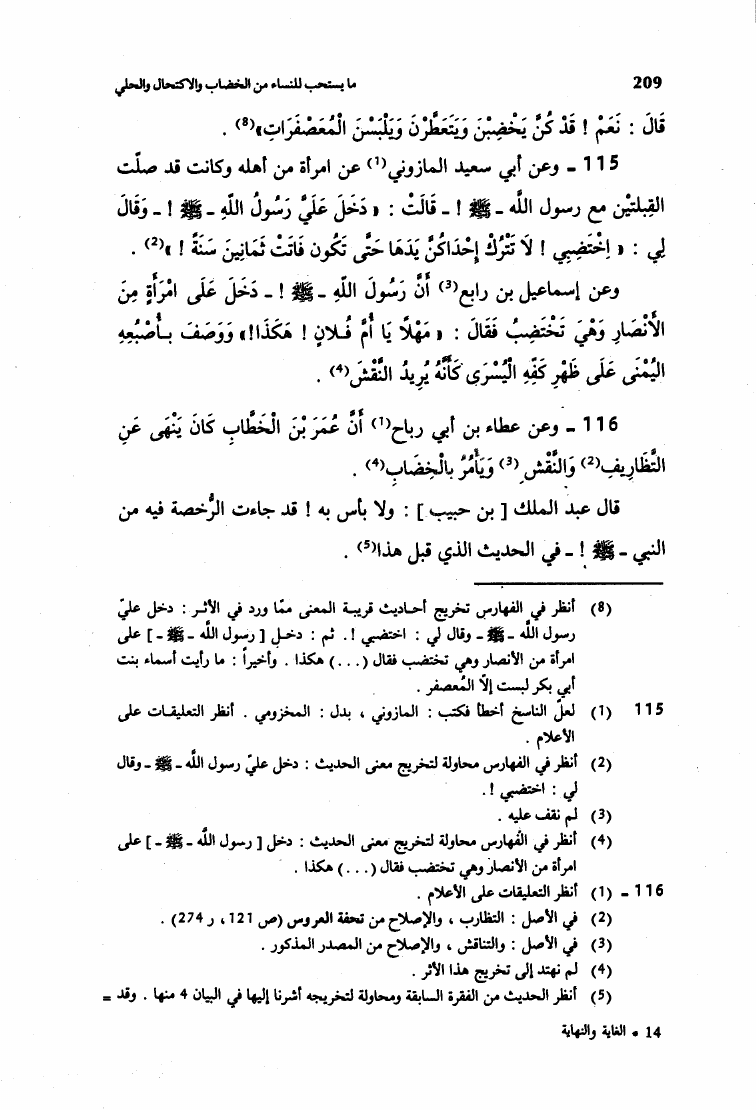 ما يستحب للنساء من الخضاب والاكتحال والحلي 209
قَالَ : نَعَمْ ! قَدْ كُنَّ يَخْضِبْنَ وَيَتَعَطَّرْنَ وَيَلْبَسْنَ الْمُعَصْفَرَاتِ»(8) .
115 ـ وعن أبي سعيد المازوني(1) عن امرأة من أهله وكانت قد صلّت
القبلتين مع رسول اللَّه ـ ﷺ ! ـ قَالَتْ : «دَخَلَ عَلَيَّ رَسُولُ اللَّهِ ـ ﷺ ! ـ وَقَالَ
لِي : « اِخْتَضِبِي ! لَا تَتْرُكْ إِحْدَاكُنَّ يَدَهَا حَتَّى تَكُون فَاتَتْ ثَمَانِينَ سَنَةً ! »(2) .
وعن إسماعيل بن رابع(3) أَنَّ رَسُولَ اللَّهِ ـ ﷺ ! ـ دَخَلَ عَلَى امْرَأَةٍ مِنَ
الْأَنْصَارِ وَهْيَ تَخْتَضِبُ فَقَالَ : « مَهْلًا يَا أُمَّ فُلانٍ ! هَكَذَا!» وَوَصَفَ بِأَصْبُعِهِ
الْيُمْنَى عَلَى ظَهْرِ كَفِّهِ الْيُسْرَى كَأَنَّهُ يُرِيدُ النَّقْشَ(4) .
116 ـ وعن عطاء بن أبي رباح(1) أَنَّ عُمَرَ بْنَ الْخَطَّابِ كَانَ يَنْهَى عَنِ
التَّظَارِيفِ(2) وَالنَّقْشِ(3) وَيَأْمُرُ بِالْخِضَابِ(4) .
قال عبد الملك [ بن حبيب ] : ولا بأس به ! قد جاءت الرُّخصة فيه من
النبي ـ ﷺ ! ـ في الحديث الذي قبل هذا(5) .
(8) أنظر في الفهارس تخريج أحاديث قريبة المعنى ممّا ورد في الأثر : دخل عليّ
رسول اللَّه ـ ﷺ ـ وقال لي : اختضبي ! . ثم : دخل [ رسول اللَّه ـ ﷺ ـ ] على
امرأة من الأنصار وهي تختضب فقال (. . .) هكذا . وأخيراً : ما رأيت أسماء بنت
أبي بكر لبست إلاّ المُعصفر .
115 (1) لعلّ الناسخ أخطأ فكتب : المازوني ، بدل : المخزومي . أنظر التعليقات على
الأعلام .
(2) أنظر في الفهارس محاولة لتخريج معنى الحديث : دخل عليّ رسول اللَّه ـ ﷺ ـ وقال
لي : اختضبي ! .
(3) لم نقف عليه .
(4) أنظر في الفهارس محاولة لتخريج معنى الحديث : دخل [ رسول اللَّه ـ ﷺ ـ ] على
امرأة من الأنصار وهي تختضب فقال (. . .) هكذا .
116 ـ (1) أنظر التعليقات على الأعلام .
(2) في الأصل : التظارب ، والإصلاح من تحفة العروس (ص 121 ، ر 274) .
(3) في الأصل : والتناقش ، والإصلاح من المصدر المذكور .
(4) لم نهتد إلى تخريج هذا الأثر .
(5) أنظر الحديث من الفقرة السابقة ومحاولة لتخريجه أشرنا إليها في البيان 4 منها . وقد =
14 • الغاية والنهاية